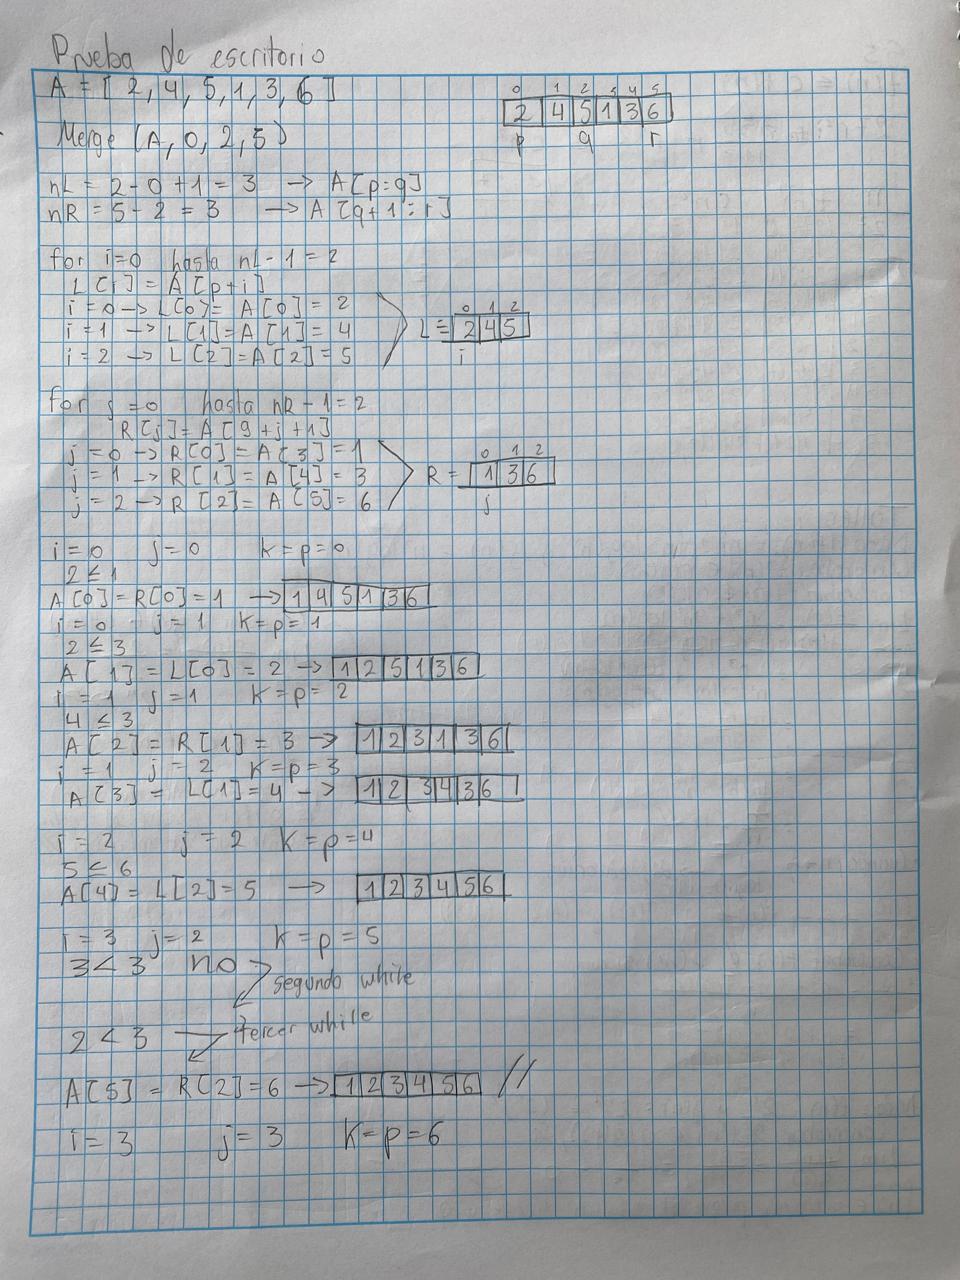 Prueba de escritorio
A = [ 2, 4, 5, 1, 3, 6 ]
0 1 2 3 4 5
2 4 5 1 3 6
p q r
Merge (A, 0, 2, 5)
nL = 2 - 0 + 1 = 3 → A[p:q]
nR = 5 - 2 = 3 → A[q+1:r]
for i=0 hasta nL-1 = 2
L[i] = A[p+i]
i = 0 → L[0] = A[0] = 2
i = 1 → L[1] = A[1] = 4
i = 2 → L[2] = A[2] = 5
0 1 2
L = 2 4 5
i
for j=0 hasta nR-1=2
R[j]=A[q+j+1]
j = 0 → R[0] = A[3] = 1
j = 1 → R[1] = A[4] = 3
j = 2 → R[2] = A[5] = 6
0 1 2
R = 1 3 6
j
i = 0 j = 0 k = p = 0
2 ≤ 1
A[0] = R[0] = 1 → 1 4 5 1 3 6
i = 0 j = 1 k = p = 1
2 ≤ 3
A[1] = L[0] = 2 → 1 2 5 1 3 6
i = 1 j = 1 k = p = 2
4 ≤ 3
A[2] = R[1] = 3 → 1 2 3 1 3 6
i = 1 j = 2 k = p = 3
A[3] = L[1] = 4 → 1 2 3 4 3 6
i = 2 j = 2 k = p = 4
5 ≤ 6
A[4] = L[2] = 5 → 1 2 3 4 5 6
i = 3 j = 2 k = p = 5
3 < 3 no
segundo while
2 < 3 tercer while
A[5] = R[2] = 6 → 1 2 3 4 5 6 //
i = 3 j = 3 k = p = 6